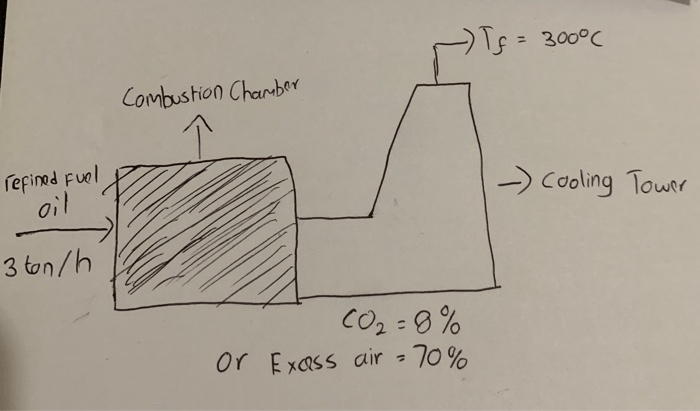 Tf = 300°C
Combustion Chamber
refined Fuel
oil
3 ton/h
Cooling Tower
CO2 = 8%
Or Exass air = 70%